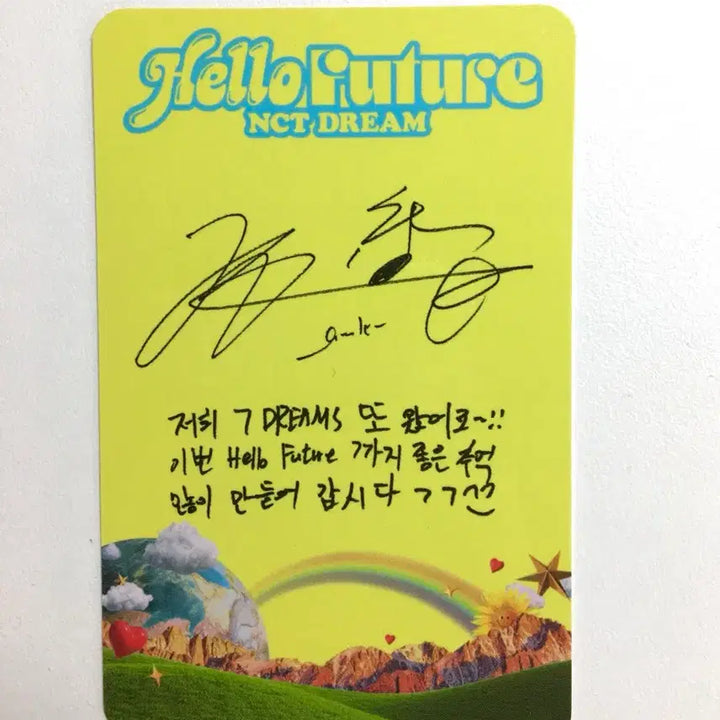 Hello Future
NCT DREAM
저희 7 DREAMS 또 왔어요~!!
이번 Hello Future 까지 좋은 추억
많이 만들어 갑시다 ㄱㄱ